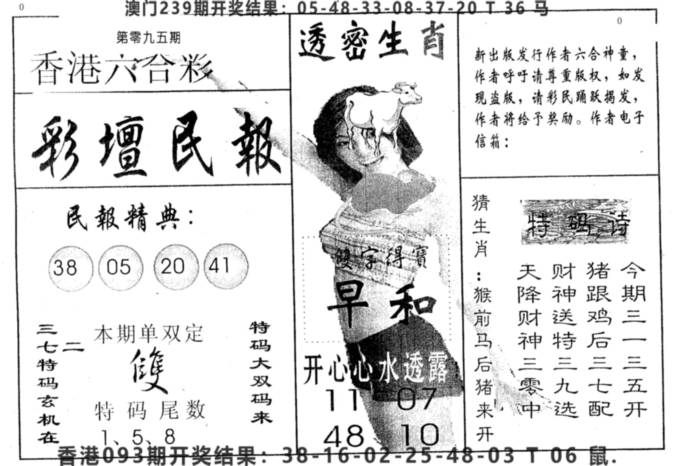 澳门239期开奖结果：05-48-33-08-37-20 T 36 马
0
第零九五期
香港六合彩
彩壇民報
民報精典：
38 05 20 41
三七特码玄机在
二
本期单双定
雙
特码尾数
1、5、8
特码大双码来
透密生肖
雙字得寶
早和
开心心水透露
11 07
48 10
0
新出版发行作者六合神童，
作者呼吁请尊重版权，如发
现盗版，请彩民踊跃揭发，
作者将给予奖励。作者电子
信箱：
猜生肖：猴前马后猪来开
特码诗
今期三一三五开
猪跟鸡后三七配
财神送特三九选
天降财神三零中
香港093期开奖结果：38-16-02-25-48-03 T 06 鼠.